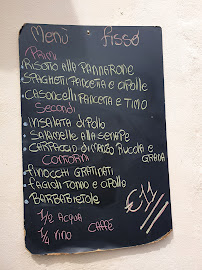 Menu fisso
Primi
Risotto alla pannarone
Spaghetti pancetta e cipolle
Casoncelli pancetta e timo
Secondi
Insalata di pollo
Salamelle alla senape
Carpaccio di manzo rucola e grana
Contorni
Finocchi gratinati
Fagioli tonno e cipolle
Barbabietole
€11
1/2 acqua
1/4 vino caffè